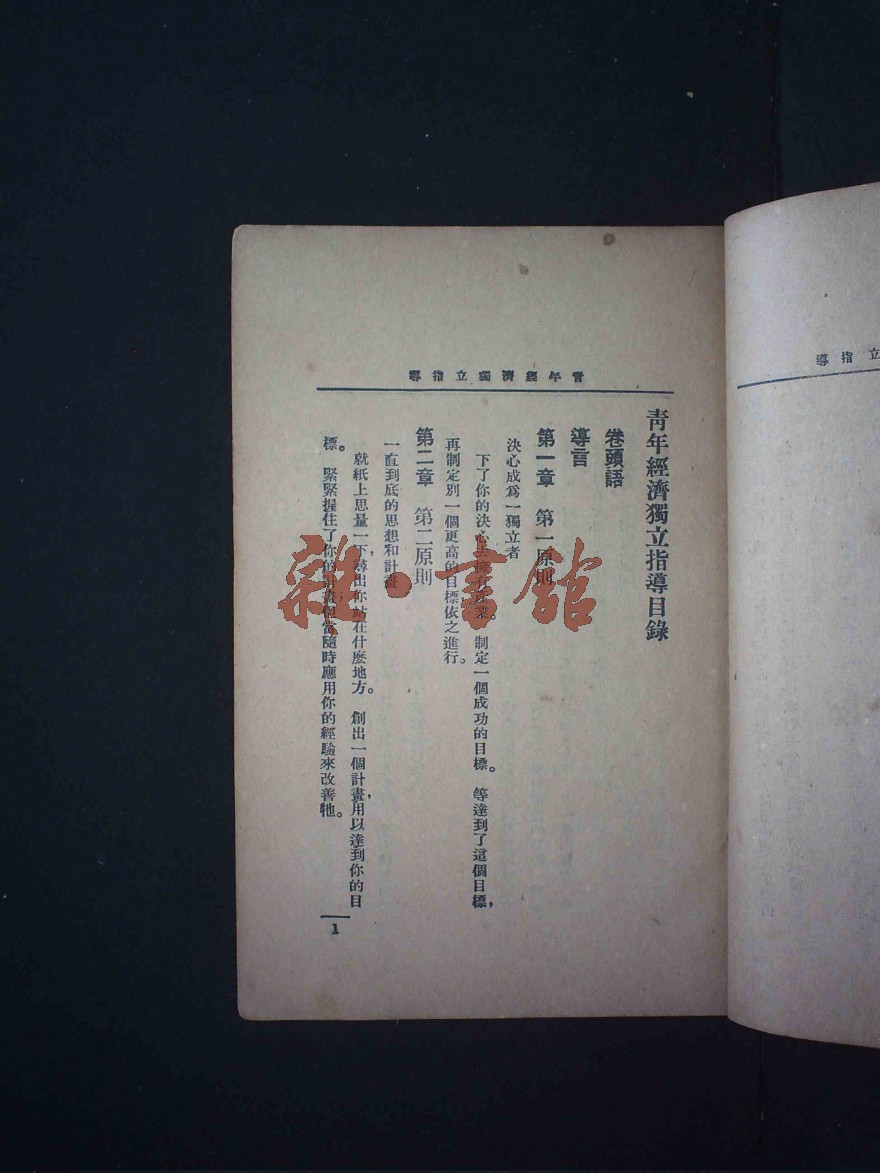 青年經濟獨立指導
青年經濟獨立指導目錄
卷頭語
導言
第一章　第一原則
決心成爲一獨立者
下了你的決心去擁有產業。制定一個成功的目標。等達到了這個目標，
再制定別一個更高的目標依之進行。
第二章　第二原則
一直到底的思想和計畫
就紙上思量一下，尋出你站在什麼地方。創出一個計畫，用以達到你的目
標。緊緊握住了你的計畫；但當隨時應用你的經驗來改善牠。
1
立指導
雜·書館